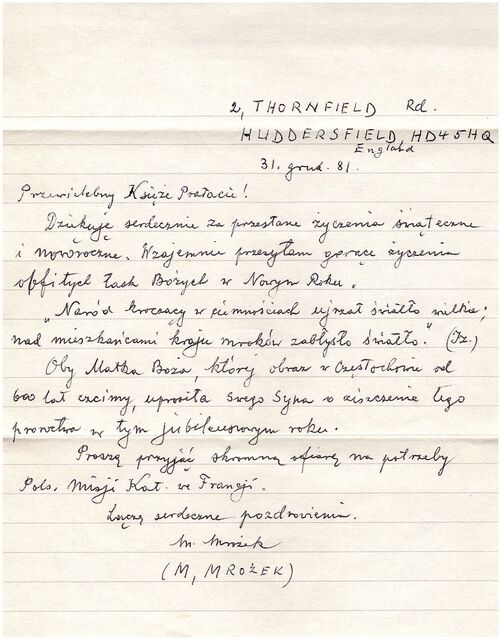 2, THORNFIELD Rd.
HUDDERSFIELD, HD4 5HQ
England
31. grud. 81.
Przewielebny Księże Prałacie!
Dziękuję serdecznie za przesłane życzenia świąteczne
i noworoczne. Wzajemnie przesyłam gorące życzenia
obfitych łask Bożych w Nowym Roku.
"Naród kroczący w ciemnościach ujrzał światło wielkie;
nad mieszkańcami kraju mroków zabłysło światło." (Iz.)
Oby Matka Boża, której obraz w Częstochowie od
600 lat czcimy, uprosiła swego Syna o ziszczenie tego
proroctwa w tym jubileuszowym roku.
Proszę przyjąć skromną ofiarę na potrzeby
Pols. Misji Kat. we Francji.
Łączę serdeczne pozdrowienia.
M. Mrożek
(M, MROŻEK)